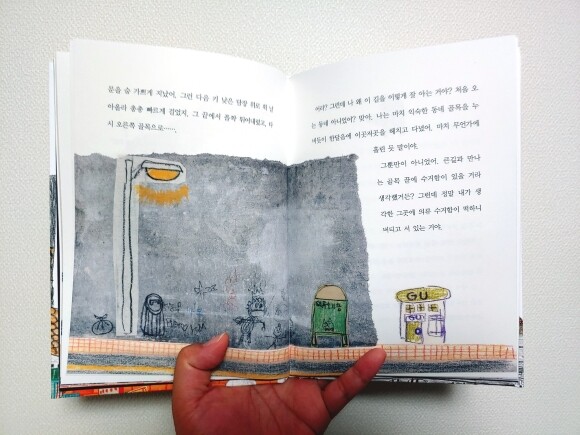 문을 숨 가쁘게 지났어, 그런 다음 키 낮은 담장 위로 휙 날
아올라 총총 빠르게 걸었지, 그 끝에서 훌쩍 뛰어내렸고, 다
시 오른쪽 골목으로……,
어라? 그런데 나 왜 이 길을 이렇게 잘 아는 거야? 처음 오
는 동네 아니었어? 맞아, 나는 마치 익숙한 동네 골목을 누
비듯이 한달음에 이곳저곳을 헤치고 다녔어, 마치 무언가에
홀린 듯 말이야.
그뿐만이 아니었어, 큰길과 만나
는 골목 끝에 수거함이 있을 거라
생각했거든? 그런데 정말 내가 생
각한 그곳에 의류 수거함이 떡하니
버티고 서 있는 거야.
GU